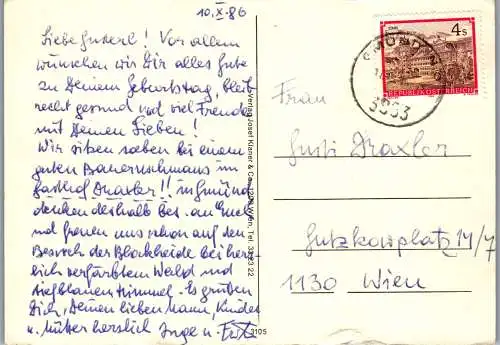 10.X.86
Liebe Gusterl! Vor allem
wünschen wir Dir alles Gute
zu Deinem Geburtstag, bleib
recht gesund und viel Freude
mit Deinen Lieben!
Wir sitzen soeben bei einem
guten Bauernschmaus im
Gasthof Draxler!! in Gmünd
denken deshalb bes. an Euch
und freuen uns schon auf den
Besuch der Blockheide bei herr-
lich verfärbtem Wald und
tiefblauem Himmel. Es grüßen
Dich, Deinen lieben Mann, Kinder
u. Mutter herzlich Inge u. Fritz
Verlag Josef
Wien, Tel.
3105
4s
REPUBLIK ÖSTERREICH
GMÜND
3953
Frau
Gusti Draxler
Gutzkowplatz 14/7
1130 Wien